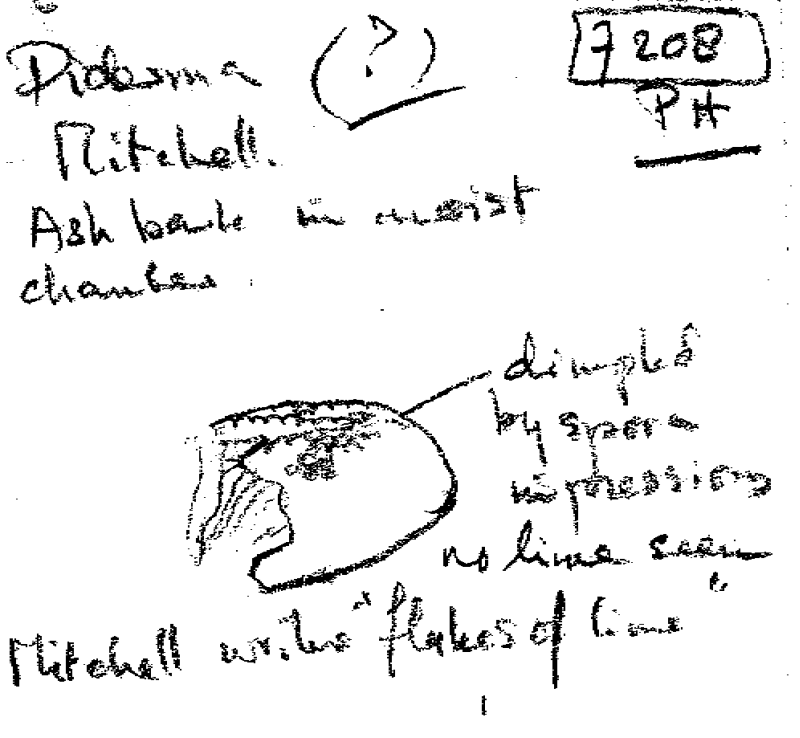 Diderma (?)
7208
PH
Mitchell.
Ash bark in moist
chamber.
dimpled
by spore
impressions
no lime seen
Mitchell writes "flakes of lime"